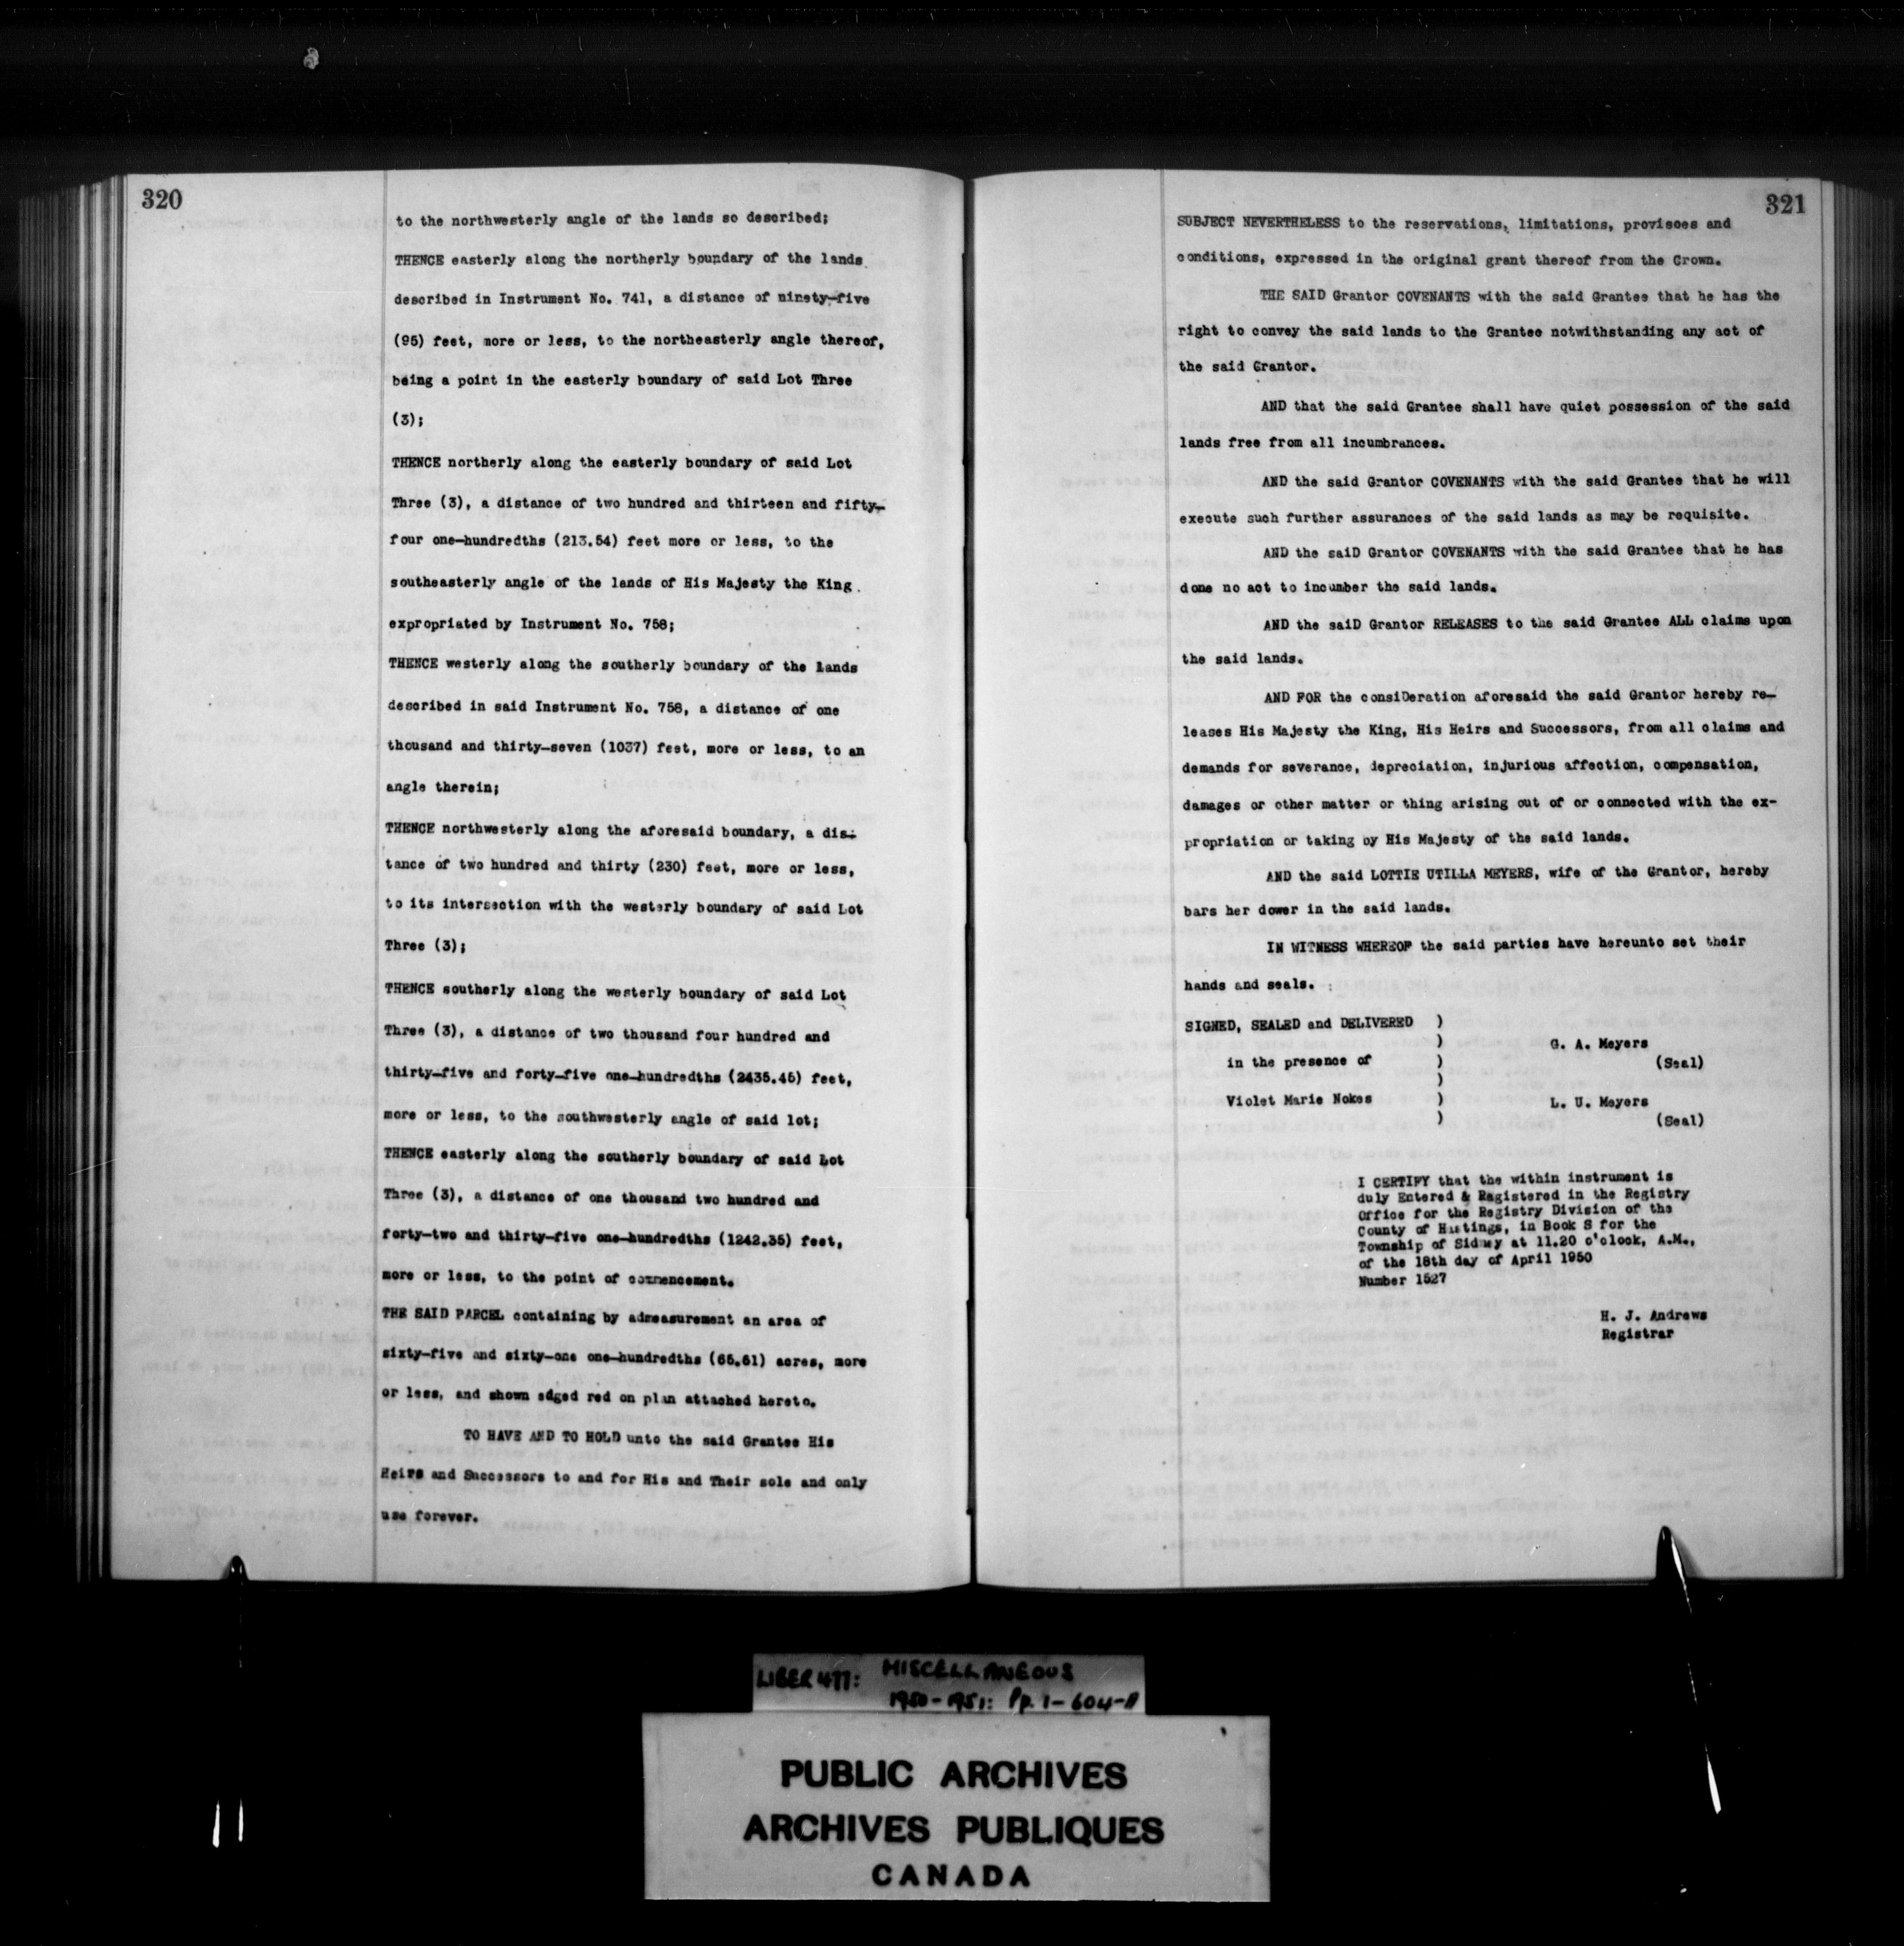 320
to the northwesterly angle of the lands so described;
THENCE easterly along the northerly boundary of the lands
described in Instrument No. 741, a distance of ninety-five
(95) feet, more or less, to the northeasterly angle thereof,
being a point in the easterly boundary of said Lot Three
(3);
THENCE northerly along the easterly boundary of said Lot
Three (3), a distance of two hundred and thirteen and fifty-
four one-hundredths (213.54) feet more or less, to the
southeasterly angle of the lands of His Majesty the King
expropriated by Instrument No. 758;
THENCE westerly along the southerly boundary of the lands
described in said Instrument No. 758, a distance of one
thousand and thirty-seven (1037) feet, more or less, to an
angle therein;
THENCE northwesterly along the aforesaid boundary, a dis-
tance of two hundred and thirty (230) feet, more or less,
to its intersection with the westerly boundary of said Lot
Three (3);
THENCE southerly along the westerly boundary of said Lot
Three (3), a distance of two thousand four hundred and
thirty-five and forty-five one-hundredths (2435.45) feet,
more or less, to the southwesterly angle of said lot;
THENCE easterly along the southerly boundary of said Lot
Three (3), a distance of one thousand two hundred and
forty-two and thirty-five one-hundredths (1242.35) feet,
more or less, to the point of commencement.
THE SAID PARCEL containing by admeasurement an area of
sixty-five and sixty-one one-hundredths (65.61) acres, more
or less, and shown edged red on plan attached hereto.
TO HAVE AND TO HOLD unto the said Grantee His
Heirs and Successors to and for His and Their sole and only
use forever.
321
SUBJECT NEVERTHELESS to the reservations, limitations, provisoes and
conditions, expressed in the original grant thereof from the Crown.
THE SAID Grantor COVENANTS with the said Grantee that he has the
right to convey the said lands to the Grantee notwithstanding any act of
the said Grantor.
AND that the said Grantee shall have quiet possession of the said
lands free from all incumbrances.
AND the said Grantor COVENANTS with the said Grantee that he will
execute such further assurances of the said lands as may be requisite.
AND the saiD Grantor COVENANTS with the said Grantee that he has
done no act to incumber the said lands.
AND the saiD Grantor RELEASES to the said Grantee ALL claims upon
the said lands.
AND FOR the consiDeration aforesaid the said Grantor hereby re-
leases His Majesty the King, His Heirs and Successors, from all claims and
demands for severance, depreciation, injurious affection, compensation,
damages or other matter or thing arising out of or connected with the ex-
propriation or taking by His Majesty of the said lands.
AND the said LOTTIE UTILLA MEYERS, wife of the Grantor, hereby
bars her dower in the said lands.
IN WITNESS WHEREOF the said parties have hereunto set their
hands and seals.
SIGNED, SEALED and DELIVERED )
) G. A. Meyers
in the presence of ) (Seal)
)
Violet Marie Nokes ) L. U. Meyers
) (Seal)
I CERTIFY that the within instrument is
duly Entered & Registered in the Registry
Office for the Registry Division of the
County of Hastings, in Book S for the
Township of Sidney at 11.20 o'clock, A.M.,
of the 18th day of April 1950
Number 1527
H. J. Andrews
Registrar
LIBER 477: MISCELLANEOUS
1950-1951: Pp. 1-604-A
PUBLIC ARCHIVES
ARCHIVES PUBLIQUES
CANADA